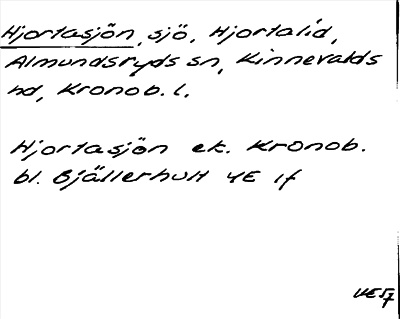 Hjortasjön, sjö, Hjortalid,
Almundsryds sn, Kinnevalds
hd, Kronob. l.
Hjortasjön ek. Kronob.
bl. Bjällerhult 4E 1f